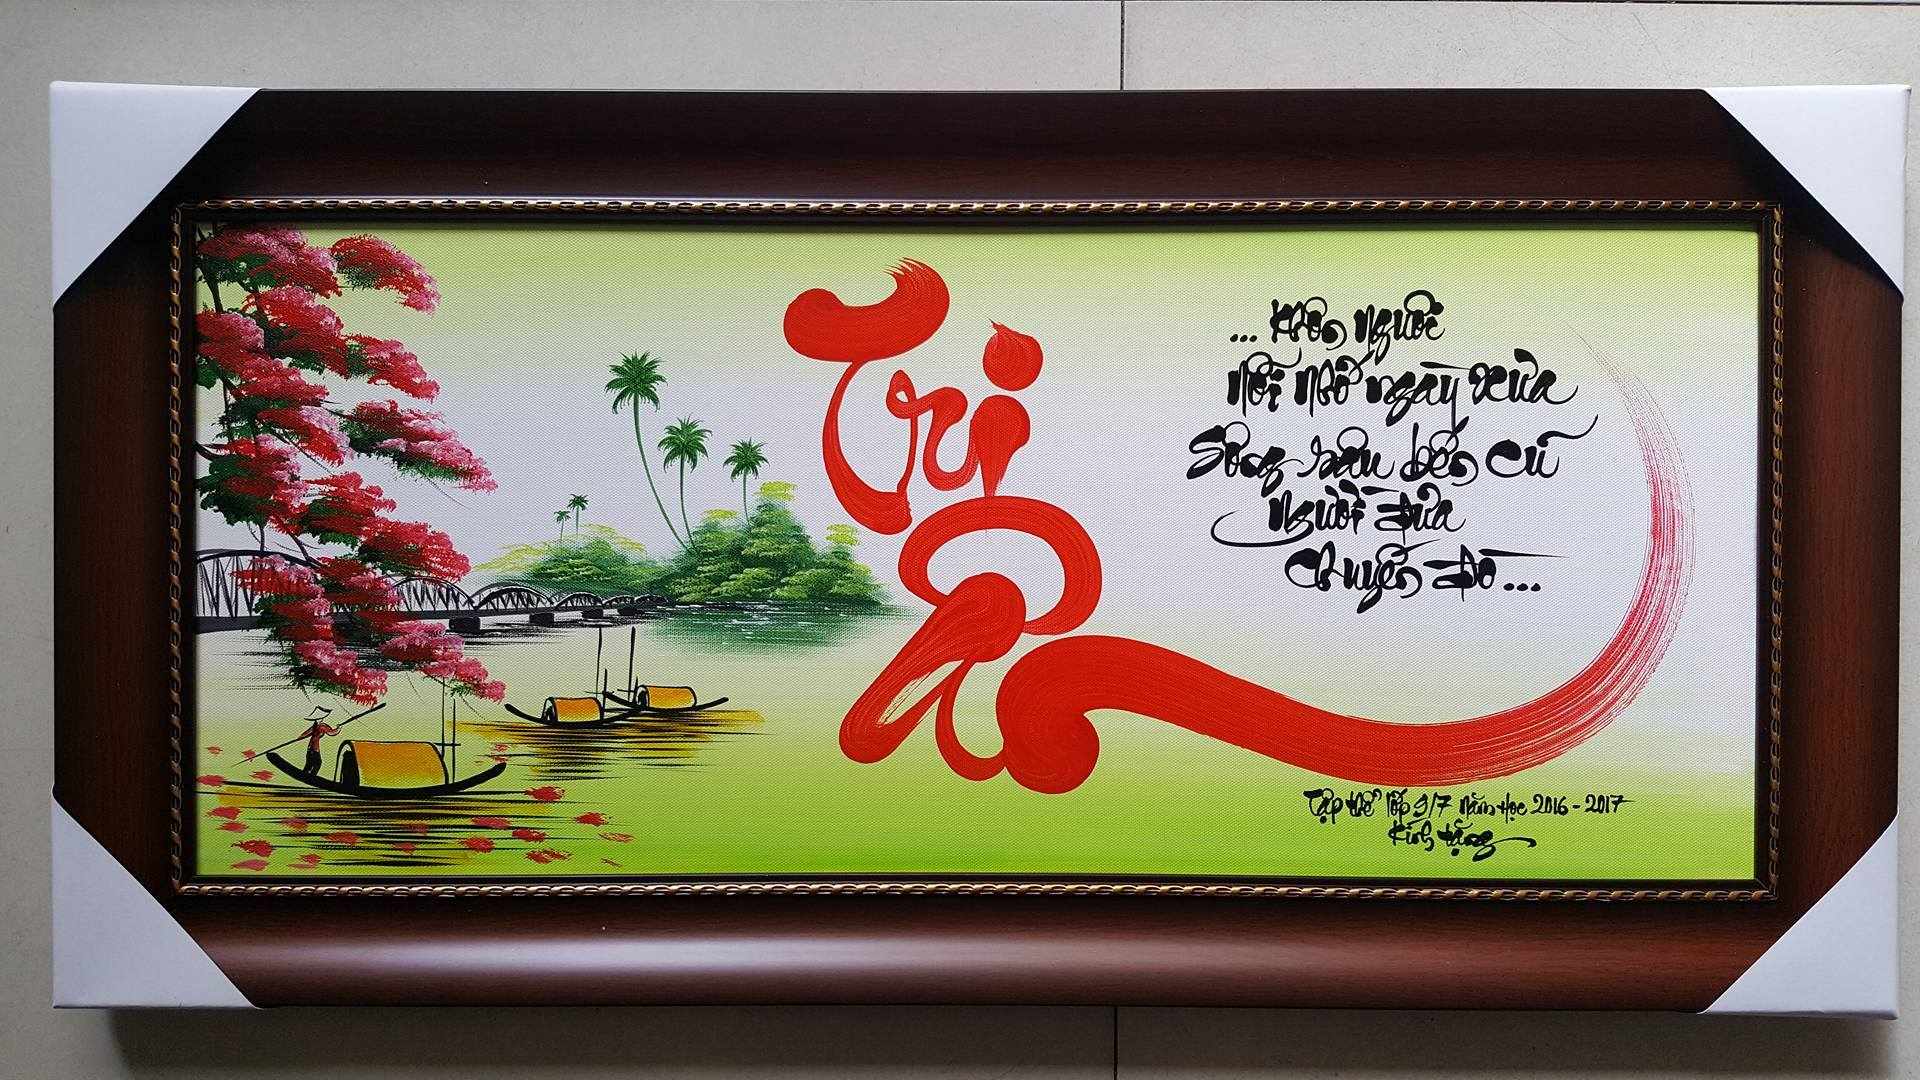 Tri
Ân
... Khôn nguôi
Nỗi nhớ ngày xưa
Sông sâu bến cũ
Người đưa
Chuyến đò ...
Tập thể lớp 9/7 năm học 2016 - 2017
Kính tặng